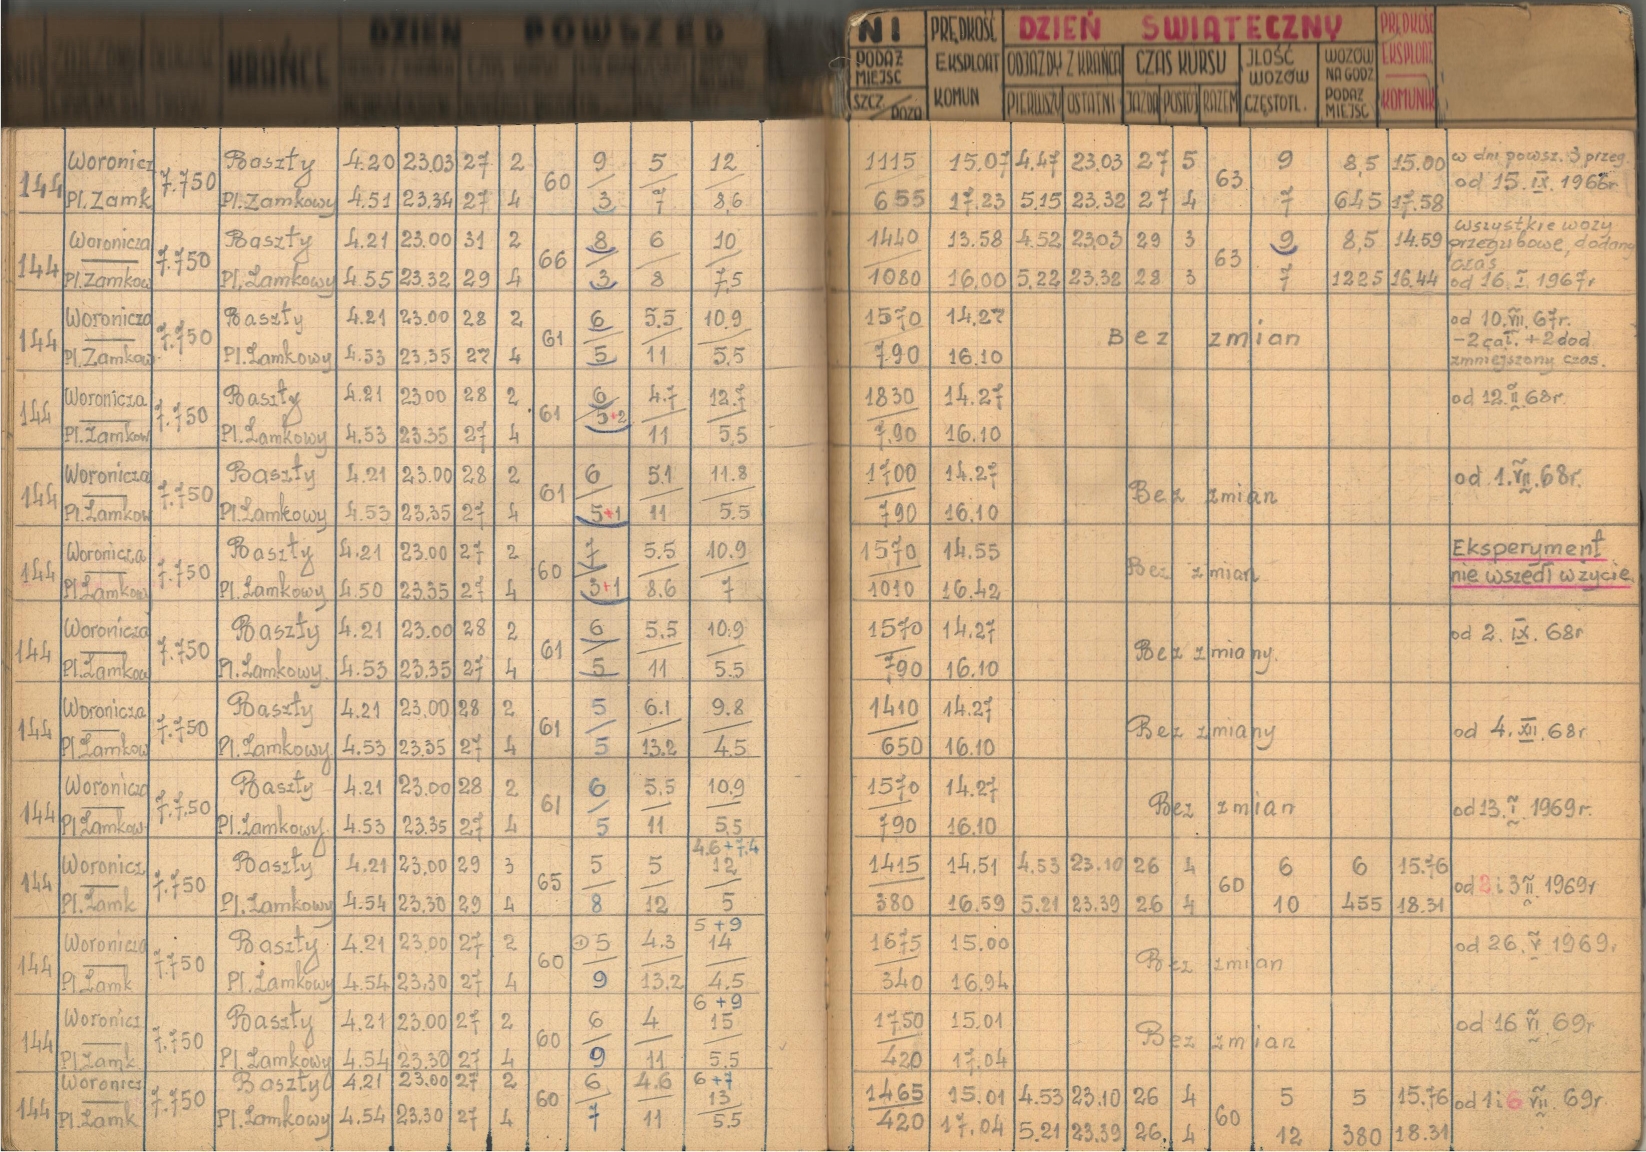 DZIEŃ POWSZED
KRAŃCE
NI PRĘDKOŚĆ DZIEŃ ŚWIĄTECZNY PRĘDKOŚĆ
PODAŻ MIEJSC EKSPLOAT ODJAZDY Z KRAŃCA CZAS KURSU ILOŚĆ WOZÓW WOZÓW NA GODZ EKSPLOAT
SZCZ/POZA KOMUN PIERWSZY OSTATNI JAZDA POSTÓJ RAZEM CZĘSTOTL. PODAŻ MIEJSC KOMUNIK
144 Woronicz 7.750 Baszty 4.20 23.03 27 2 60 9 5 12 1115 15.07 4.47 23.03 27 5 63 9 8,5 15.00 w dni powsz. 3 przeg.
Pl.Zamk Pl.Zamkowy 4.51 23.34 27 4 3 7 8,6 655 17.23 5.15 23.32 27 4 7 645 17.58 od 15. IX. 1966r
144 Woronicza 7.750 Baszty 4.21 23.00 31 2 66 8 6 10 1440 13.58 4.52 23.03 29 3 63 9 8,5 14.59 wszystkie wozy przegubowe, dodany czas
Pl.Zamkow Pl.Zamkowy 4.55 23.32 29 4 3 8 7,5 1080 16.00 5.22 23.32 28 3 7 1225 16.44 od 16. I. 1967r
144 Woronicza 7.750 Baszty 4.21 23.00 28 2 61 6 5.5 10.9 1570 14.27 Bez zmian od 10.VII.67r.
Pl.Zamkow Pl.Zamkowy 4.53 23.35 27 4 5 11 5.5 790 16.10 -2 cał. +2 dod zmniejszony czas.
144 Woronicza 7.750 Baszty 4.21 23 00 28 2 61 6 4.7 12.7 1830 14.27 od 12.II.68r.
Pl.Zamkow Pl.Zamkowy 4.53 23.35 27 4 5+2 11 5.5 7.90 16.10
144 Woronicza 7.750 Baszty 4.21 23.00 28 2 61 6 5.1 11.8 1700 14.27 Bez zmian od 1.VII.68r.
Pl.Zamkow Pl.Zamkowy 4.53 23.35 27 4 5+1 11 5.5 790 16.10
144 Woronicza 7.750 Baszty 4.21 23.00 27 2 60 7 5.5 10.9 1570 14.55 Bez zmian Eksperyment
Pl.Zamkow Pl.Zamkowy 4.50 23.35 27 4 3+1 8.6 7 1010 16.42 nie wszedł w życie.
144 Woronicza 7.750 Baszty 4.21 23.00 28 2 61 6 5.5 10.9 1570 14.27 Bez zmiany. od 2. IX. 68r
Pl.Zamkow Pl.Zamkowy. 4.53 23.35 27 4 5 11 5.5 790 16.10
144 Woronicza 7.750 Baszty 4.21 23.00 28 2 61 5 6.1 9.8 1410 14.27 Bez zmiany od 4. XII. 68r.
Pl.Zamkow Pl.Zamkowy 4.53 23.35 27 4 5 13.2 4.5 650 16.10
144 Woronicza 7.7.50 Baszty 4.21 23.00 28 2 61 6 5,5 10.9 1570 14.27 Bez zmian od 13. I. 1969r.
Pl.Zamkow Pl.Zamkowy. 4.53 23.35 27 4 5 11 5,5 790 16.10
4.6+7.4
144 Woronicz 7.750 Baszty 4.21 23.00 29 3 65 5 5 12 1415 14.51 4.53 23.10 26 4 60 6 6 15.76 od 2 i 3 II 1969r
Pl.Zamk Pl.Zamkowy 4.54 23.30 29 4 8 12 5 380 16.59 5.21 23.39 26 4 10 455 18.31
5+9
144 Woronicza 7.750 Baszty 4.21 23.00 27 2 60 5 4.3 14 1675 15.00 Bez zmian od 26. V 1969.
Pl.Zamk Pl.Zamkowy 4.54 23.30 27 4 9 13.2 4.5 340 16.94
6+9
144 Woronicz 7.750 Baszty 4.21 23.00 27 2 60 6 4 15 1750 15.01 Bez zmian od 16 VI. 69r.
Pl.Zamk Pl.Zamkowy 4.54 23.30 27 4 9 11 5.5 420 17.04
144 Woronicz 7.750 Baszty 4.21 23.00 27 2 60 6 4.6 6+7 13 1465 15.01 4.53 23.10 26 4 60 5 5 15.76 od 1 i 6 VII. 69r.
Pl.Zamk Pl.Zamkowy 4.54 23.30 27 4 7 11 5.5 420 17.04 5.21 23.39 26. 4 12 380 18.31